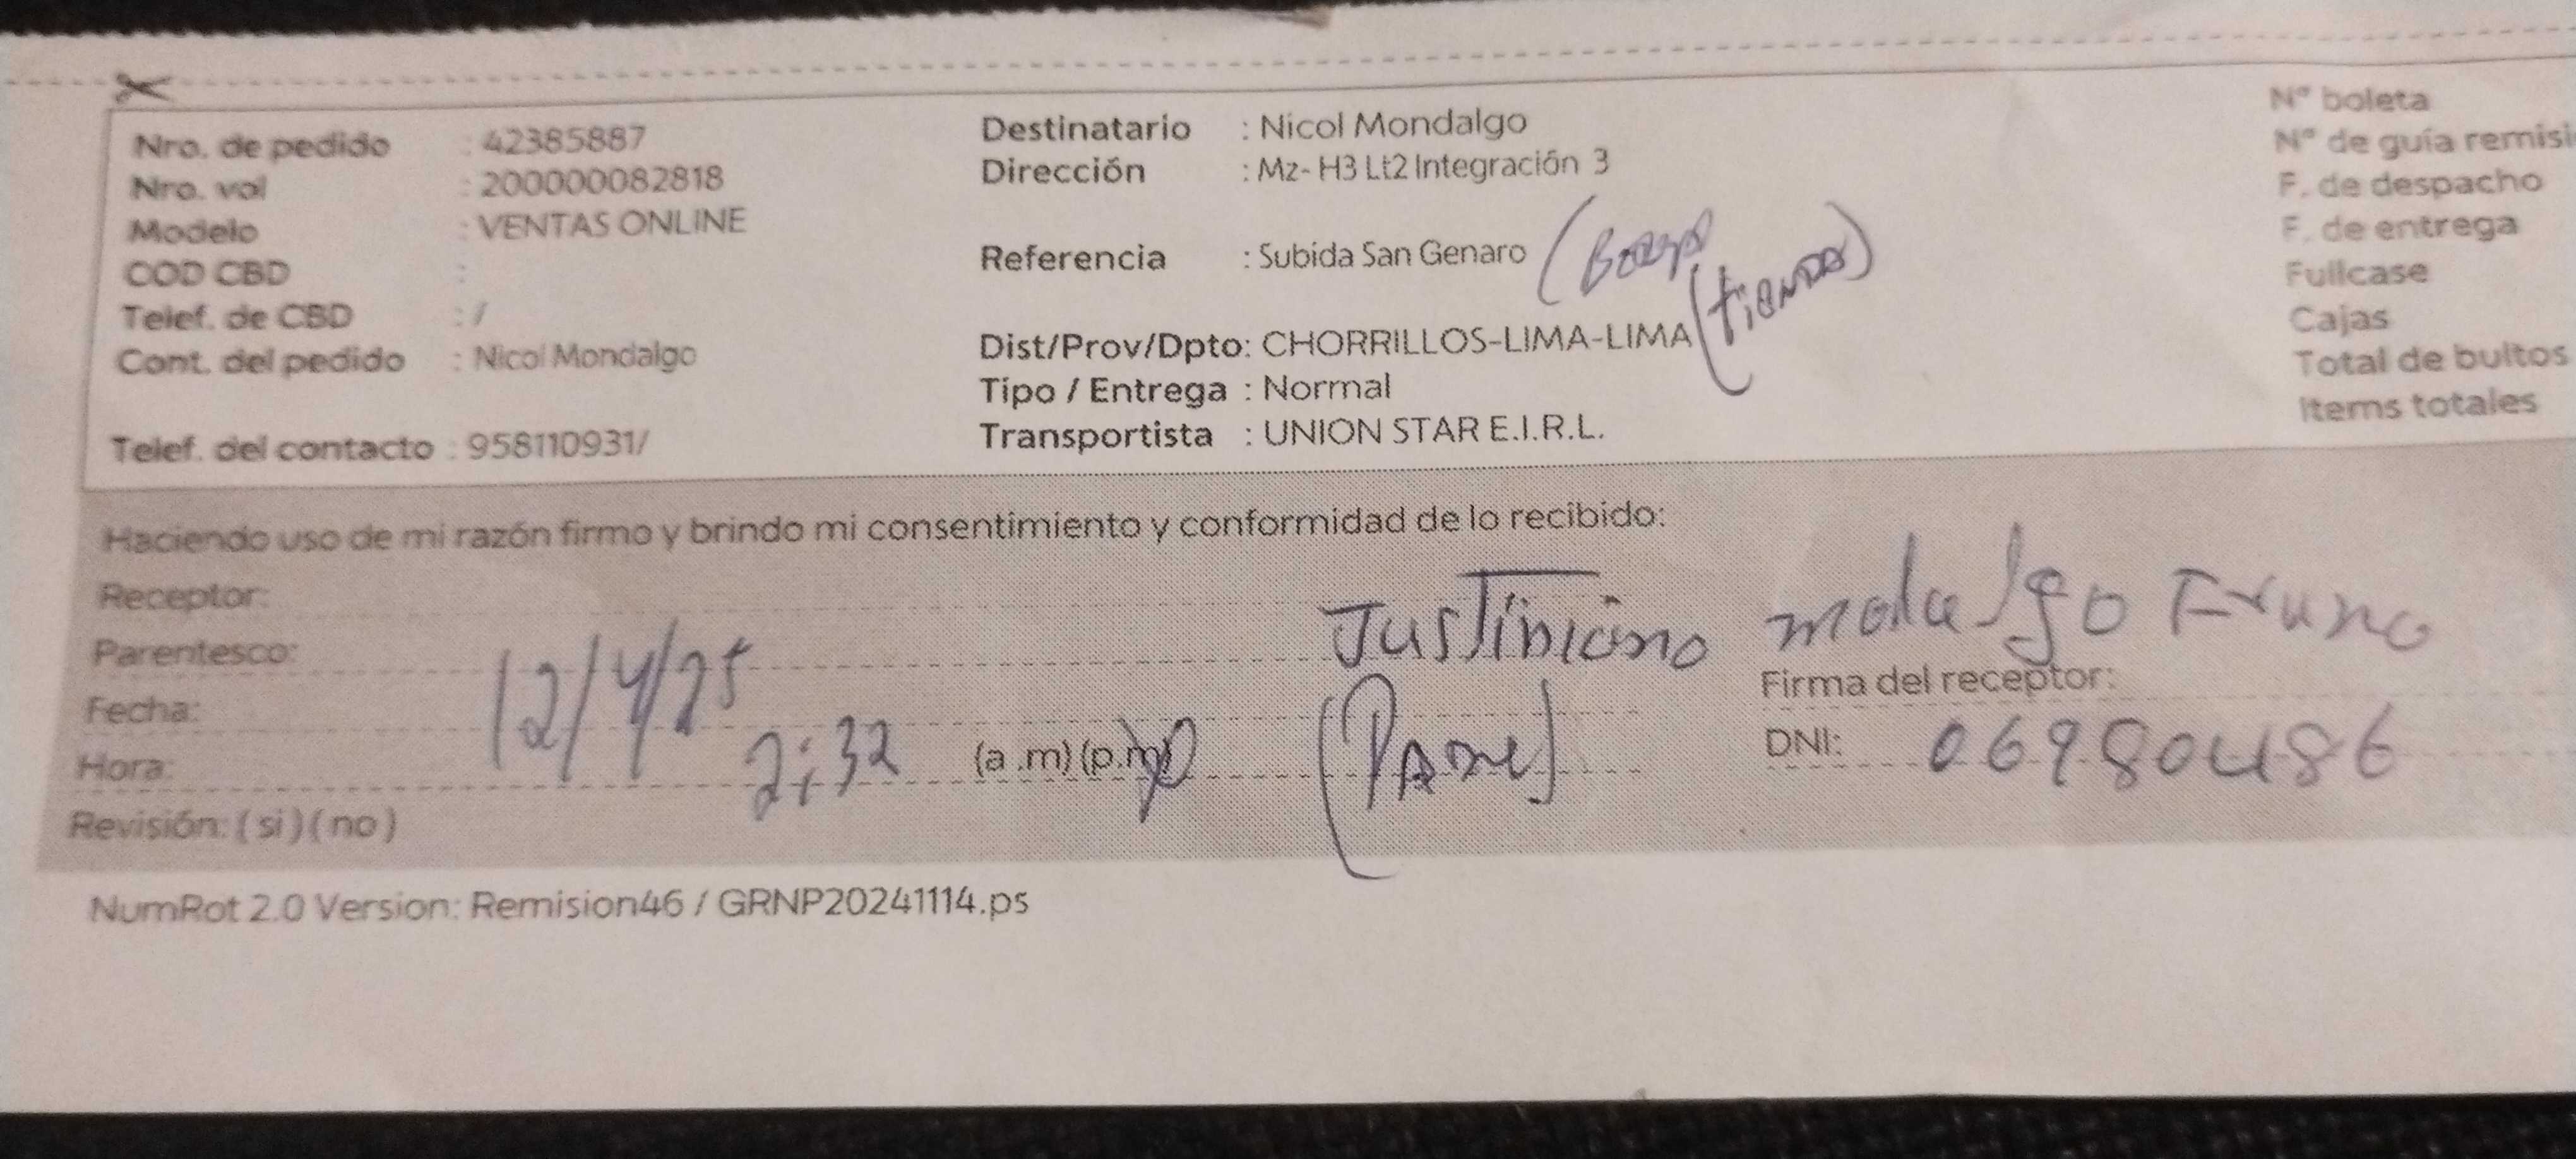 Nro. de pedido : 42385887
Nro. vol : 200000082818
Modelo : VENTAS ONLINE
COD CBD :
Telef. de CBD : /
Cont. del pedido : Nicol Mondalgo
Telef. del contacto : 958110931/
Destinatario : Nicol Mondalgo
Dirección : Mz- H3 Lt2 Integración 3
Referencia : Subida San Genaro
(tienda)
Dist/Prov/Dpto: CHORRILLOS-LIMA-LIMA
Tipo / Entrega : Normal
Transportista : UNION STAR E.I.R.L.
N° boleta
N° de guía remisi
F. de despacho
F. de entrega
Fullcase
Cajas
Total de bultos
Items totales
Haciendo uso de mi razón firmo y brindo mi consentimiento y conformidad de lo recibido:
Receptor:
Parentesco:
Fecha: 12/4/25
Hora: 2:32 (a .m) (p.m)
Revisión: ( si ) ( no )
Justiniano
(Padre)
Firma del receptor:
DNI: 06980486
NumRot 2.0 Version: Remision46 / GRNP20241114.ps